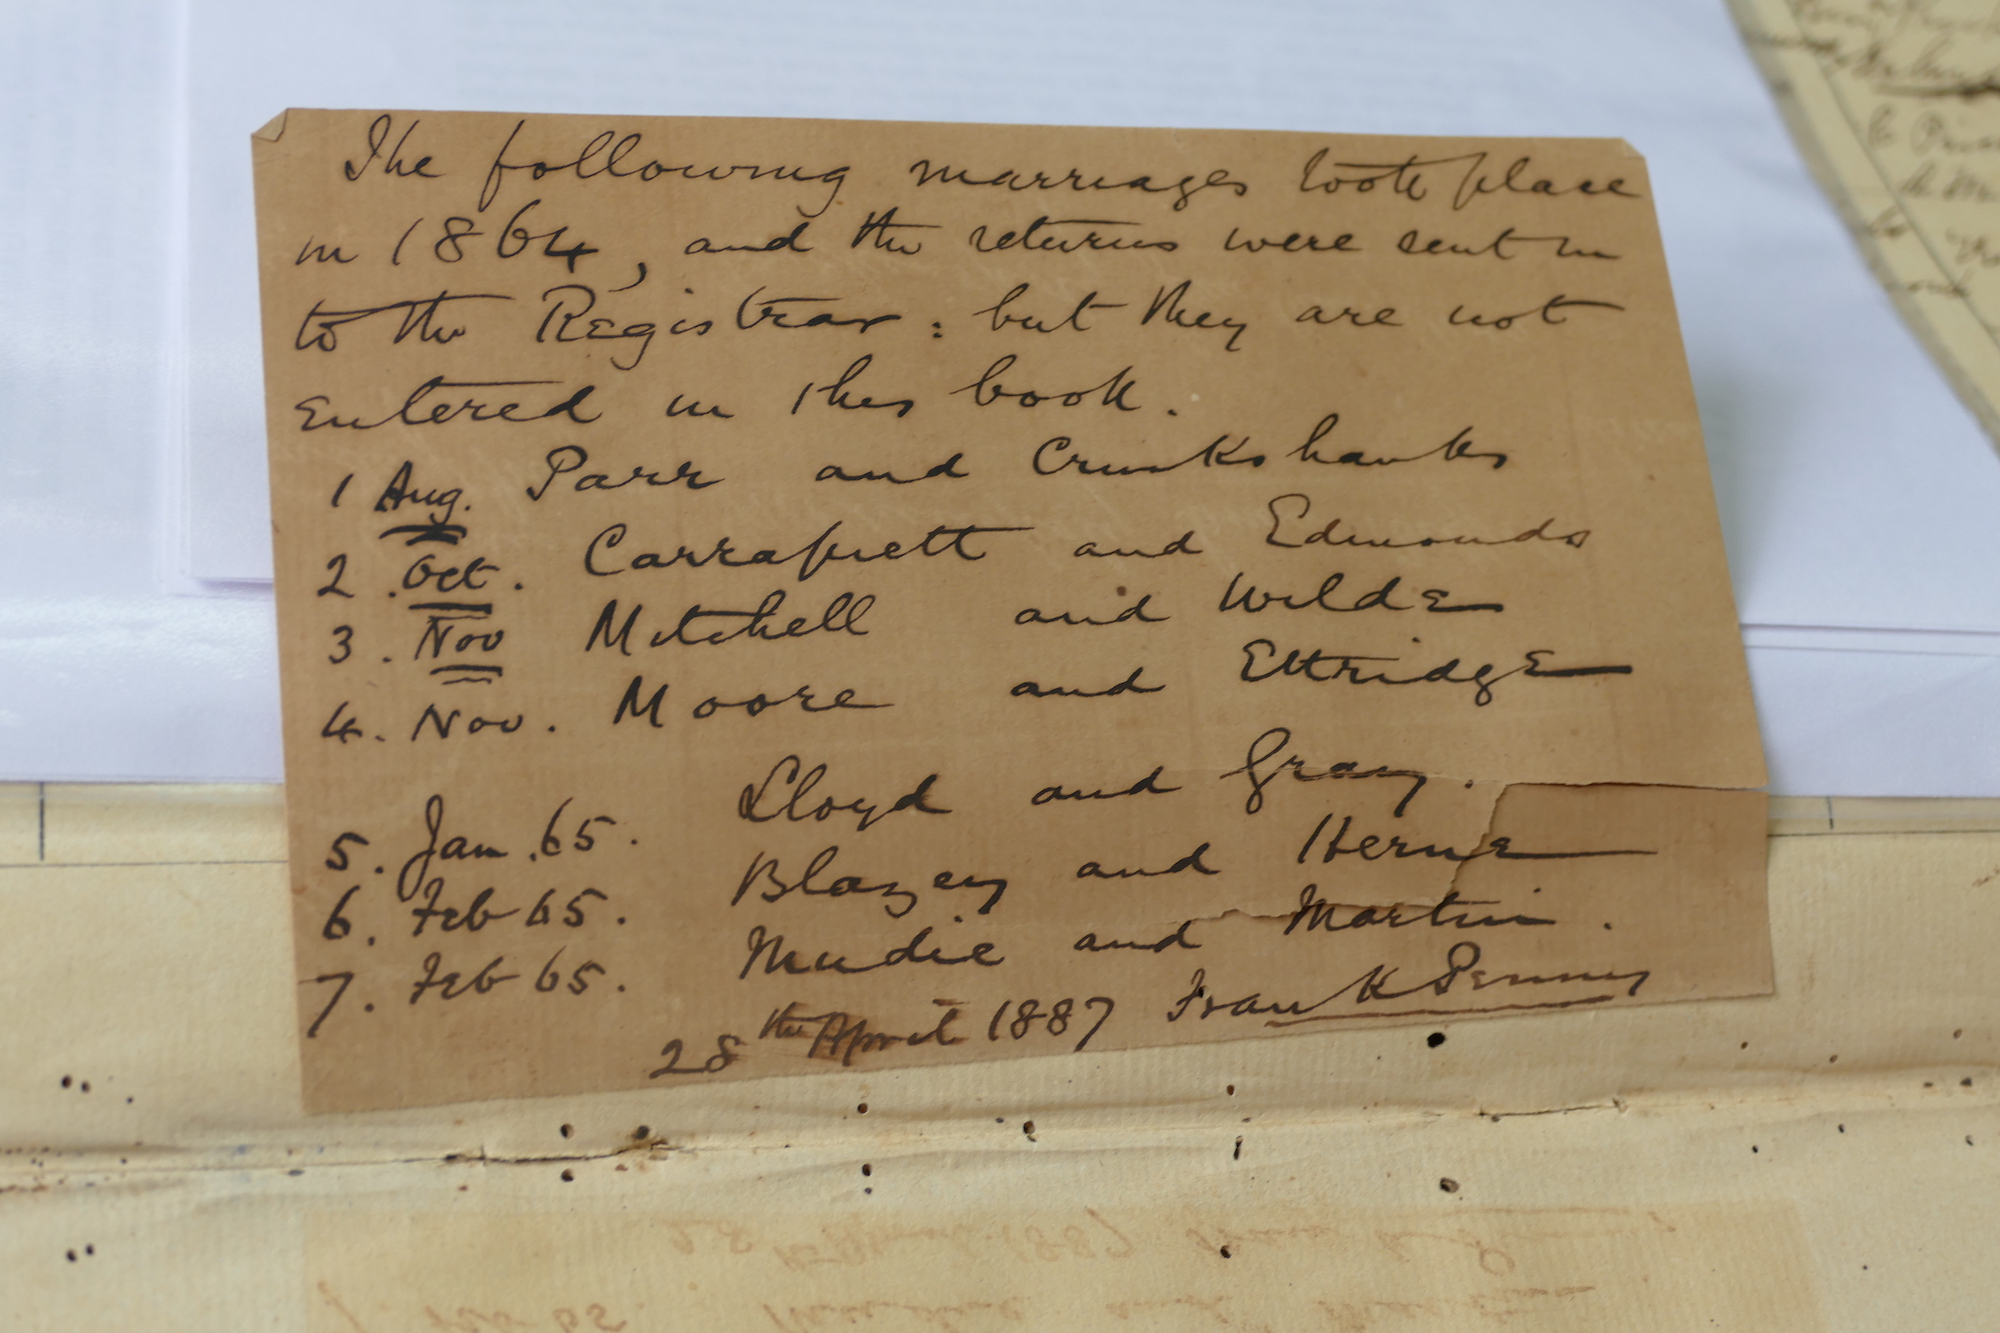 The following marriages took place
in 1864, and the returns were sent in
to the Registrar: but they are not
entered in this book.
1 Aug. Parr and Crunkshanks
2. Oct. Carrapiett and Edmonds
3. Nov Mitchell and Wilde
4. Nov. Moore and Ettridge
5. Jan. 65. Lloyd and Gray.
6. Feb 65. Blazey and Herne
7. Feb 65. Mudie and Martin.
28th April 1887 Frank Penny